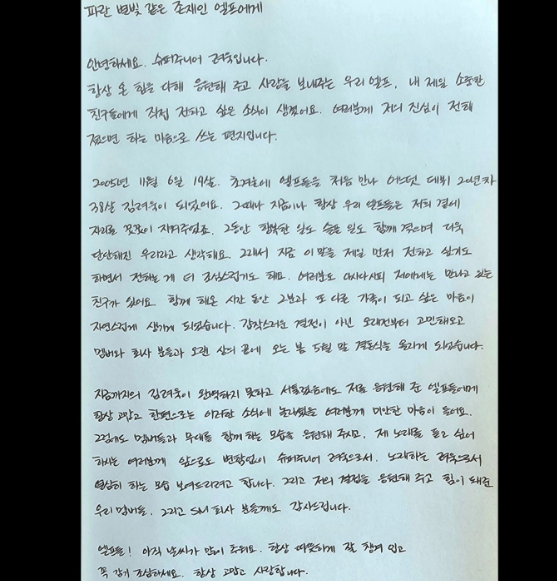 파란 별빛 같은 존재인 엘프에게
안녕하세요. 슈퍼주니어 려욱입니다.
항상 온 힘을 다해 응원해 주고 사랑을 보내주는 우리 엘프, 내 제일 소중한
친구들에게 직접 전하고 싶은 소식이 생겼어요. 여러분께 저의 진심이 전해
졌으면 하는 마음으로 쓰는 편지입니다.
2005년 11월 6일 19살, 초겨울에 엘프들을 처음 만나 어느덧 데뷔 20년차
38살 김려욱이 되었어요. 그때나 지금이나 항상 우리 엘프들은 저희 곁에
자리를 꼿꼿이 지켜주었죠. 그동안 행복한 일도 슬픈 일도 함께 겪으며 더욱
단단해진 우리라고 생각해요. 그래서 지금 이 말을 제일 먼저 전하고 싶기도
하면서 전하는 게 더 조심스럽기도 해요. 여러분도 아시다시피 저에게는 만나고 있는
친구가 있어요. 함께 해온 시간 동안 그분과 또 다른 가족이 되고 싶은 마음이
자연스럽게 생기게 되었습니다. 갑작스러운 결정이 아닌 오래전부터 고민해오고
멤버와 회사 분들과 오랜 상의 끝에 오는 봄 5월 말 결혼식을 올리게 되었습니다.
지금까지의 김려욱이 완벽하지 못하고 서툴렀음에도 저를 응원해 준 엘프들에게
항상 고맙고 한편으로는 이러한 소식에 놀라셨을 여러분께 미안한 마음이 들어요.
그럼에도 멤버들과 무대를 함께 하는 모습을 응원해 주시고, 제 노래를 듣고 싶어
하시는 여러분께 앞으로도 변함없이 슈퍼주니어 려욱으로서, 노래하는 려욱으로서
열심히 하는 모습 보여드리려고 합니다. 그리고 저의 결정을 응원해 주고 힘이 돼준
우리 멤버들, 그리고 SM 회사 분들께도 감사드립니다.
엘프들! 아직 날씨가 많이 추워요. 항상 따뜻하게 잘 챙겨 입고
꼭 감기 조심하세요. 항상 고맙고 사랑합니다.